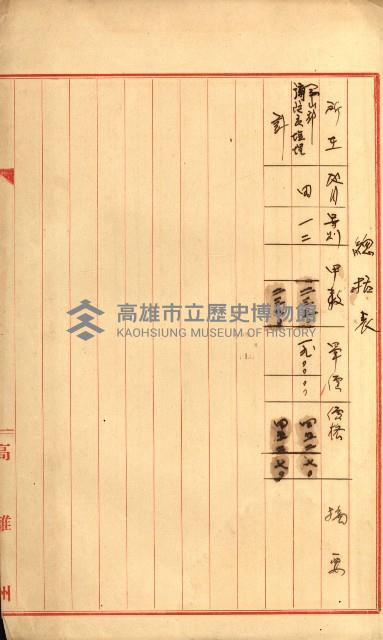 總括表
所在 地目 等則 甲數 單價 價格 摘要
岡山郡
彌陀庄塩埕 田 一二 一九〇〇〇〇 四五二七〇
計 四五二七〇
高雄州
高雄市立歷史博物館
KAOHSIUNG MUSEUM OF HISTORY